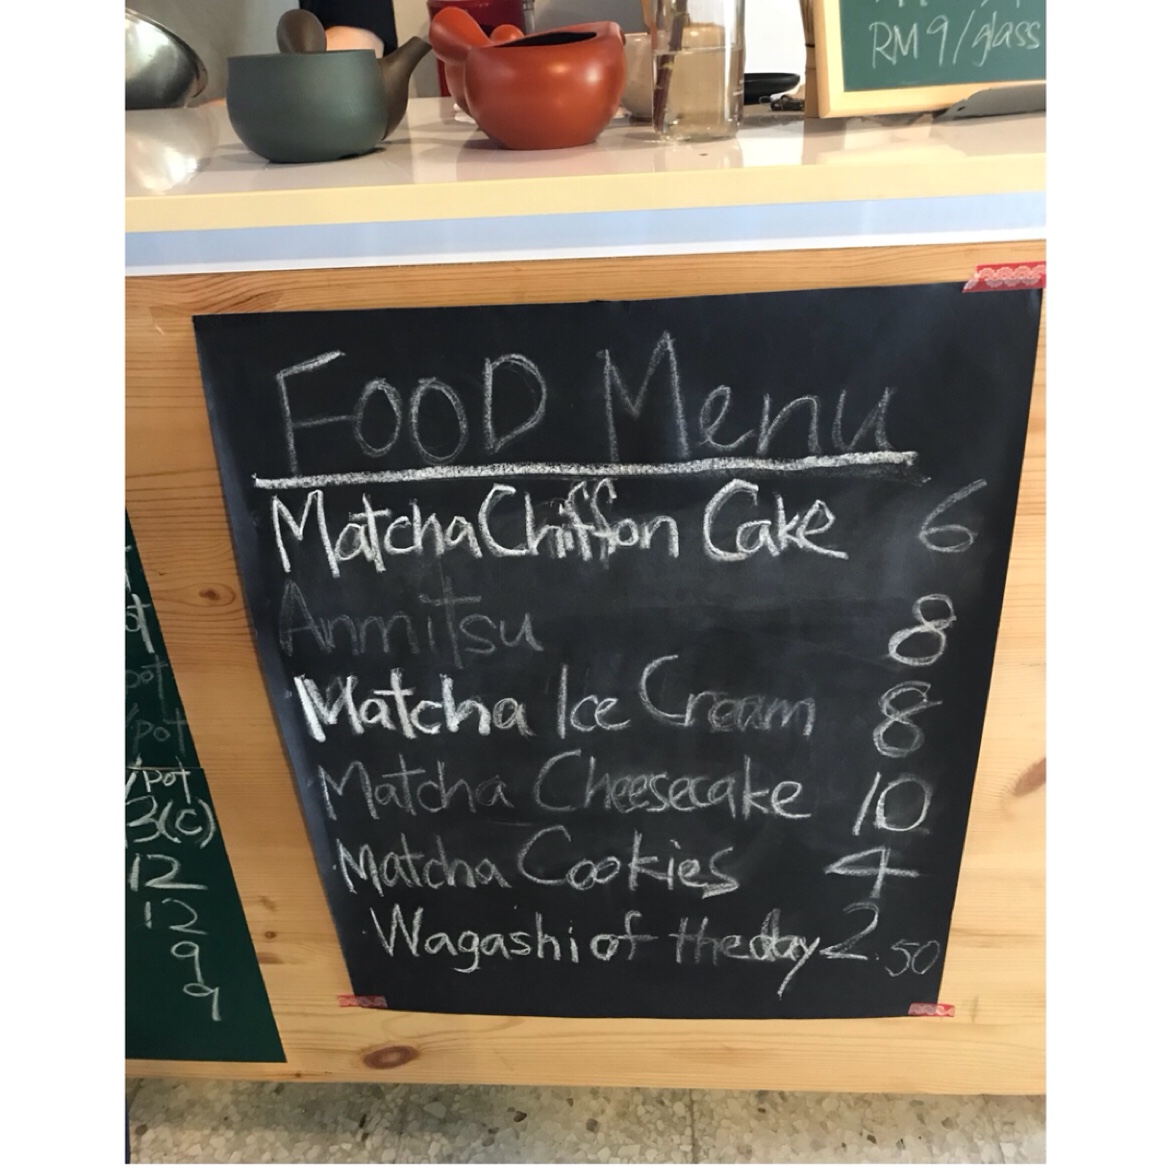 RM 9/glass
FOOD Menu
Matcha Chiffon Cake 6
Anmitsu 8
Matcha Ice Cream 8
Matcha Cheesecake 10
Matcha Cookies 4
Wagashi of the day 2.50
pot
/pot
/pot
3(c)
12
12
9
9